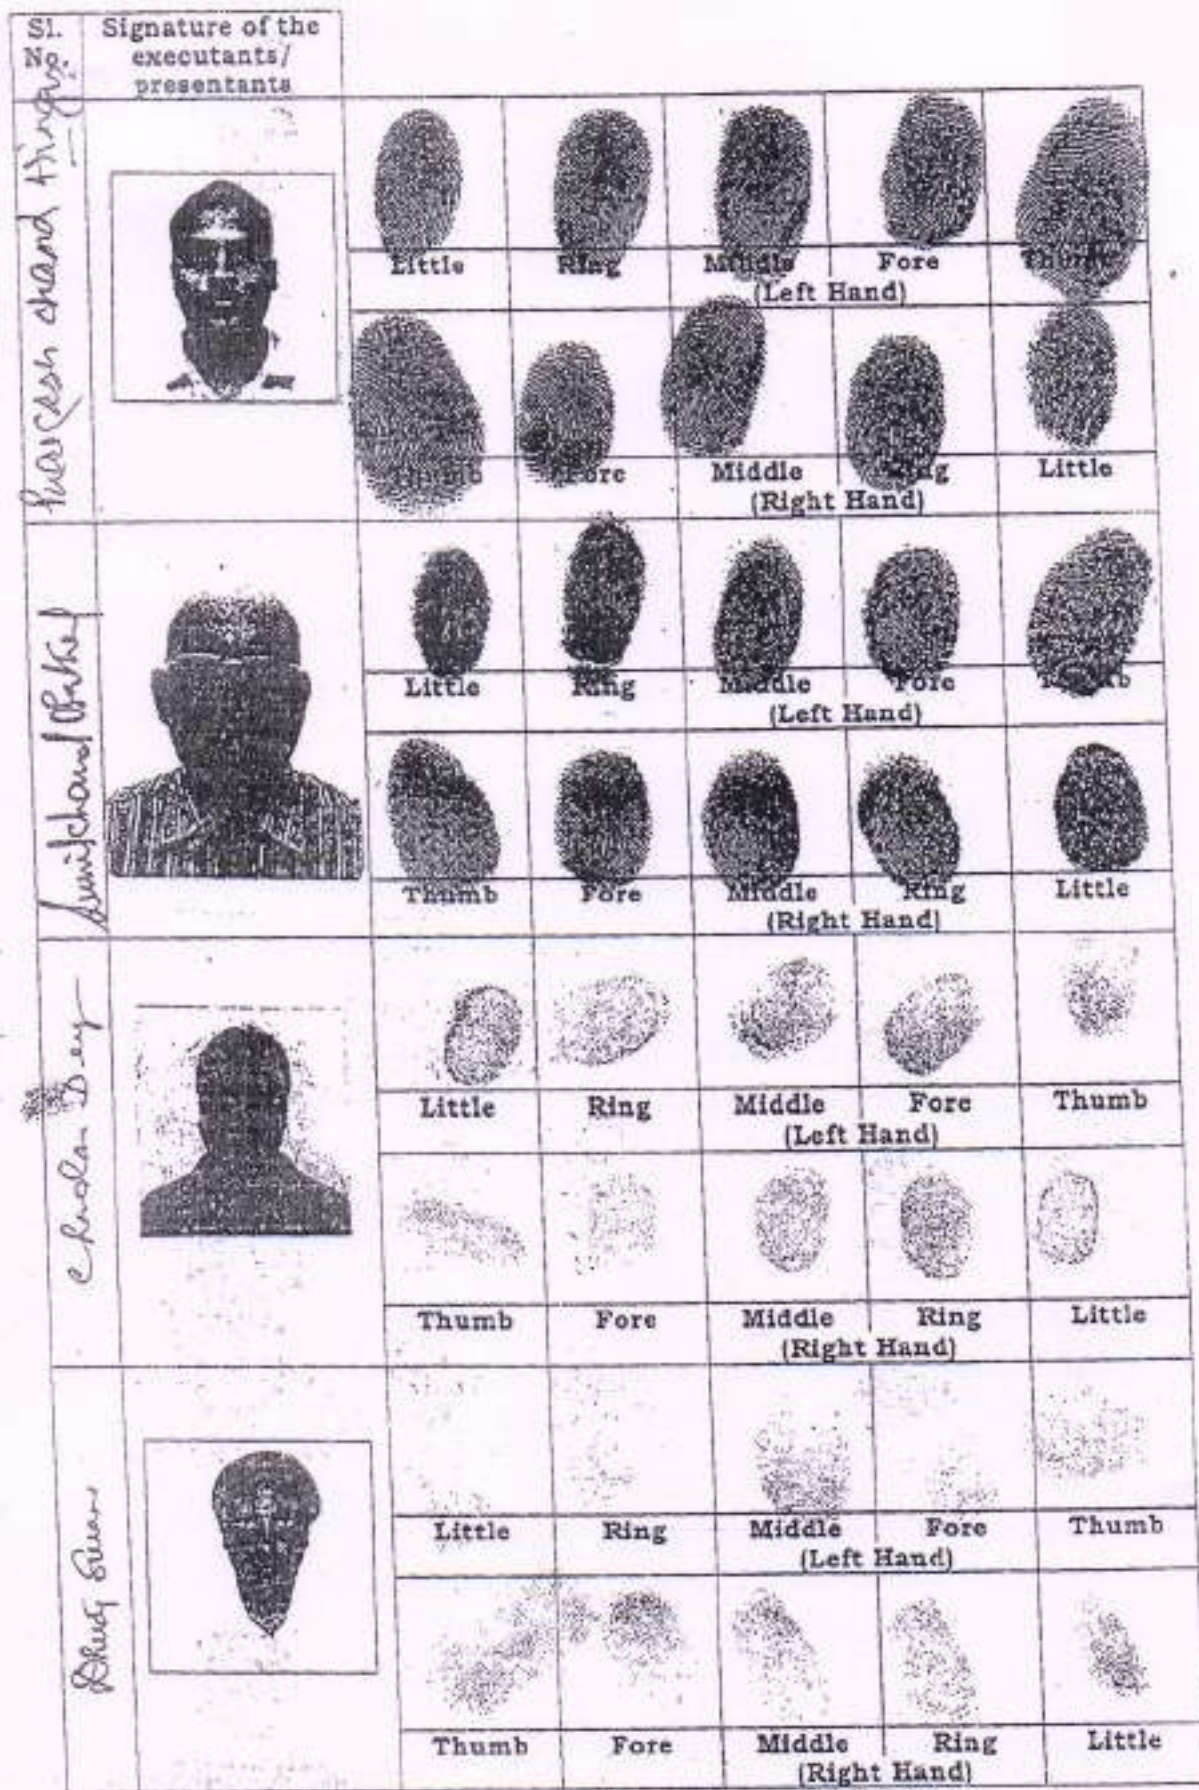 Sl. No.
Signature of the
executants/
presentants
Little Ring Middle Fore Thumb
(Left Hand)
Thumb Fore Middle Ring Little
(Right Hand)
chand
Little Ring Middle Fore Thumb
(Left Hand)
Thumb Fore Middle Ring Little
(Right Hand)
Little Ring Middle Fore Thumb
(Left Hand)
Thumb Fore Middle Ring Little
(Right Hand)
Dey
Little Ring Middle Fore Thumb
(Left Hand)
Thumb Fore Middle Ring Little
(Right Hand)